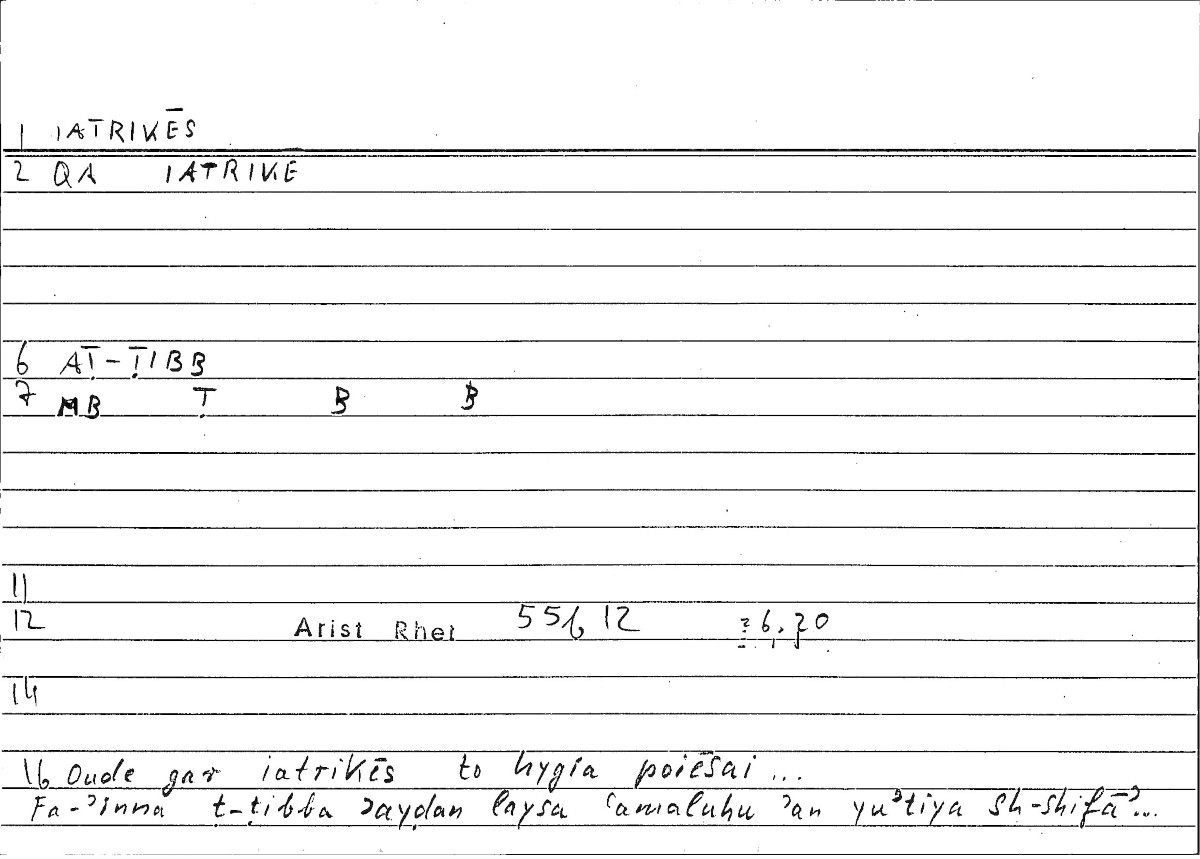 1 IATRIKĒS
2 QA IATRIKE
6 AṬ-ṬIBB
7 MB Ṭ B B
11
12 Arist Rhet 55b12
14
16 Oude gar iatrikēs to hygia poiēsai ...
Fa-ʾinna ṭ-ṭibba ʾayḍan laysa ʿamaluhu ʾan yuʾtiya sh-shifāʾ...